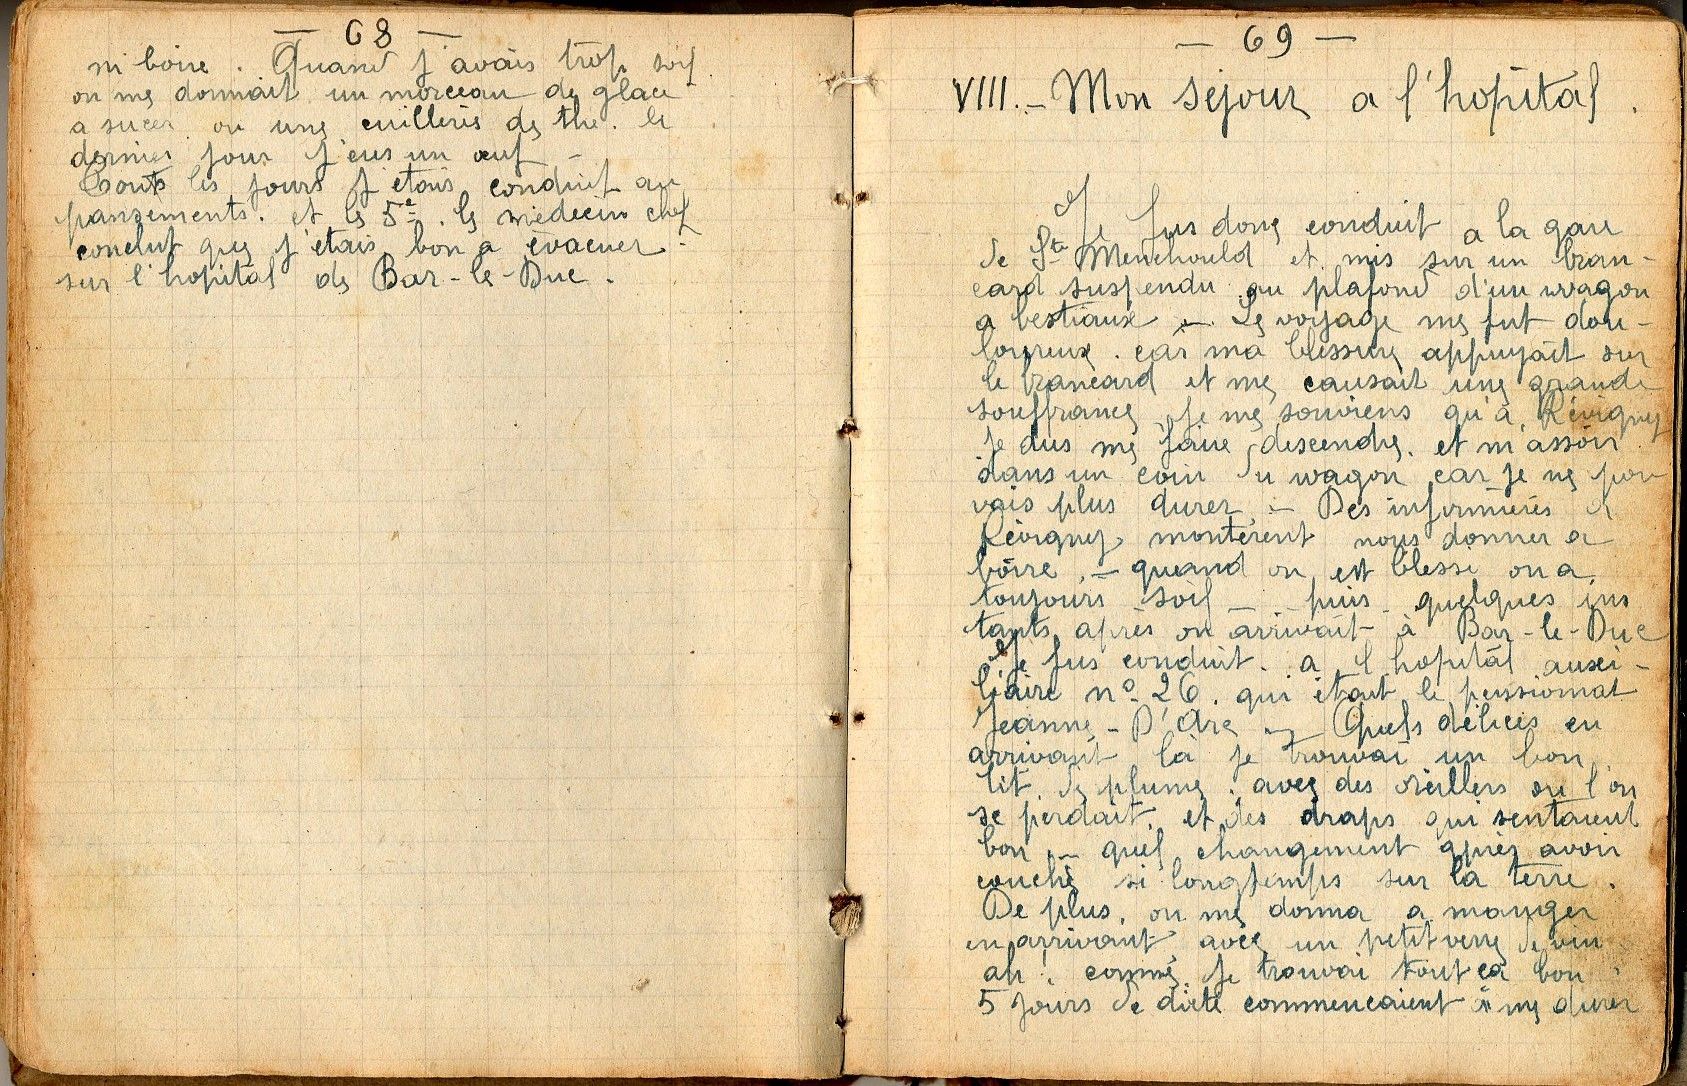 — 68 —
ni boire. Quand j'avais trop soif
on me donnait un morceau de glace
a sucer ou une cuilleres de the. le
dernier jour j'eus un œuf —
Touts les jours j'etais conduit au
pansements. et le 5e. le medecin chef
conclut que j'etais bon a évacuer
sur l'hopital de Bar-le-Duc.
— 69 —
VIII. - Mon sejour a l'hopital.
Je fus donc conduit a la gare
de Ste Menehould et mis sur un bran-
card suspendu au plafond d'un wagon
a bestiaux — Le voyage me fut dou-
loureux. car ma blessure appuyait sur
le brancard et me causait une grande
souffrance. Je me souviens qu'à Révigny
je dus me faire descendre. et m'assoir
dans un coin du wagon car je ne pou
vais plus durer. — Des infirmières de
Révigny montèrent nous donner a
boire. — quand on est blesse on a
toujours soif — puis quelques ins
tants après on arrivait à Bar-le-Duc
Je fus conduit. a l'hopital auxi-
liaire no 26. qui étant le pensionnat
Jeanne-D'Arc — Quels délices en
arrivant là je trouvai un bon
lit de plume. avec des oreillers ou l'on
se perdait. et des draps qui sentaient
bon — quel changement après avoir
couché si longtemps sur la terre.
De plus, on me donna a manger
en arrivant avec un petit verre de vin
ah! comme je trouvai tout ça bon
5 jours de diète commencaient à me durer